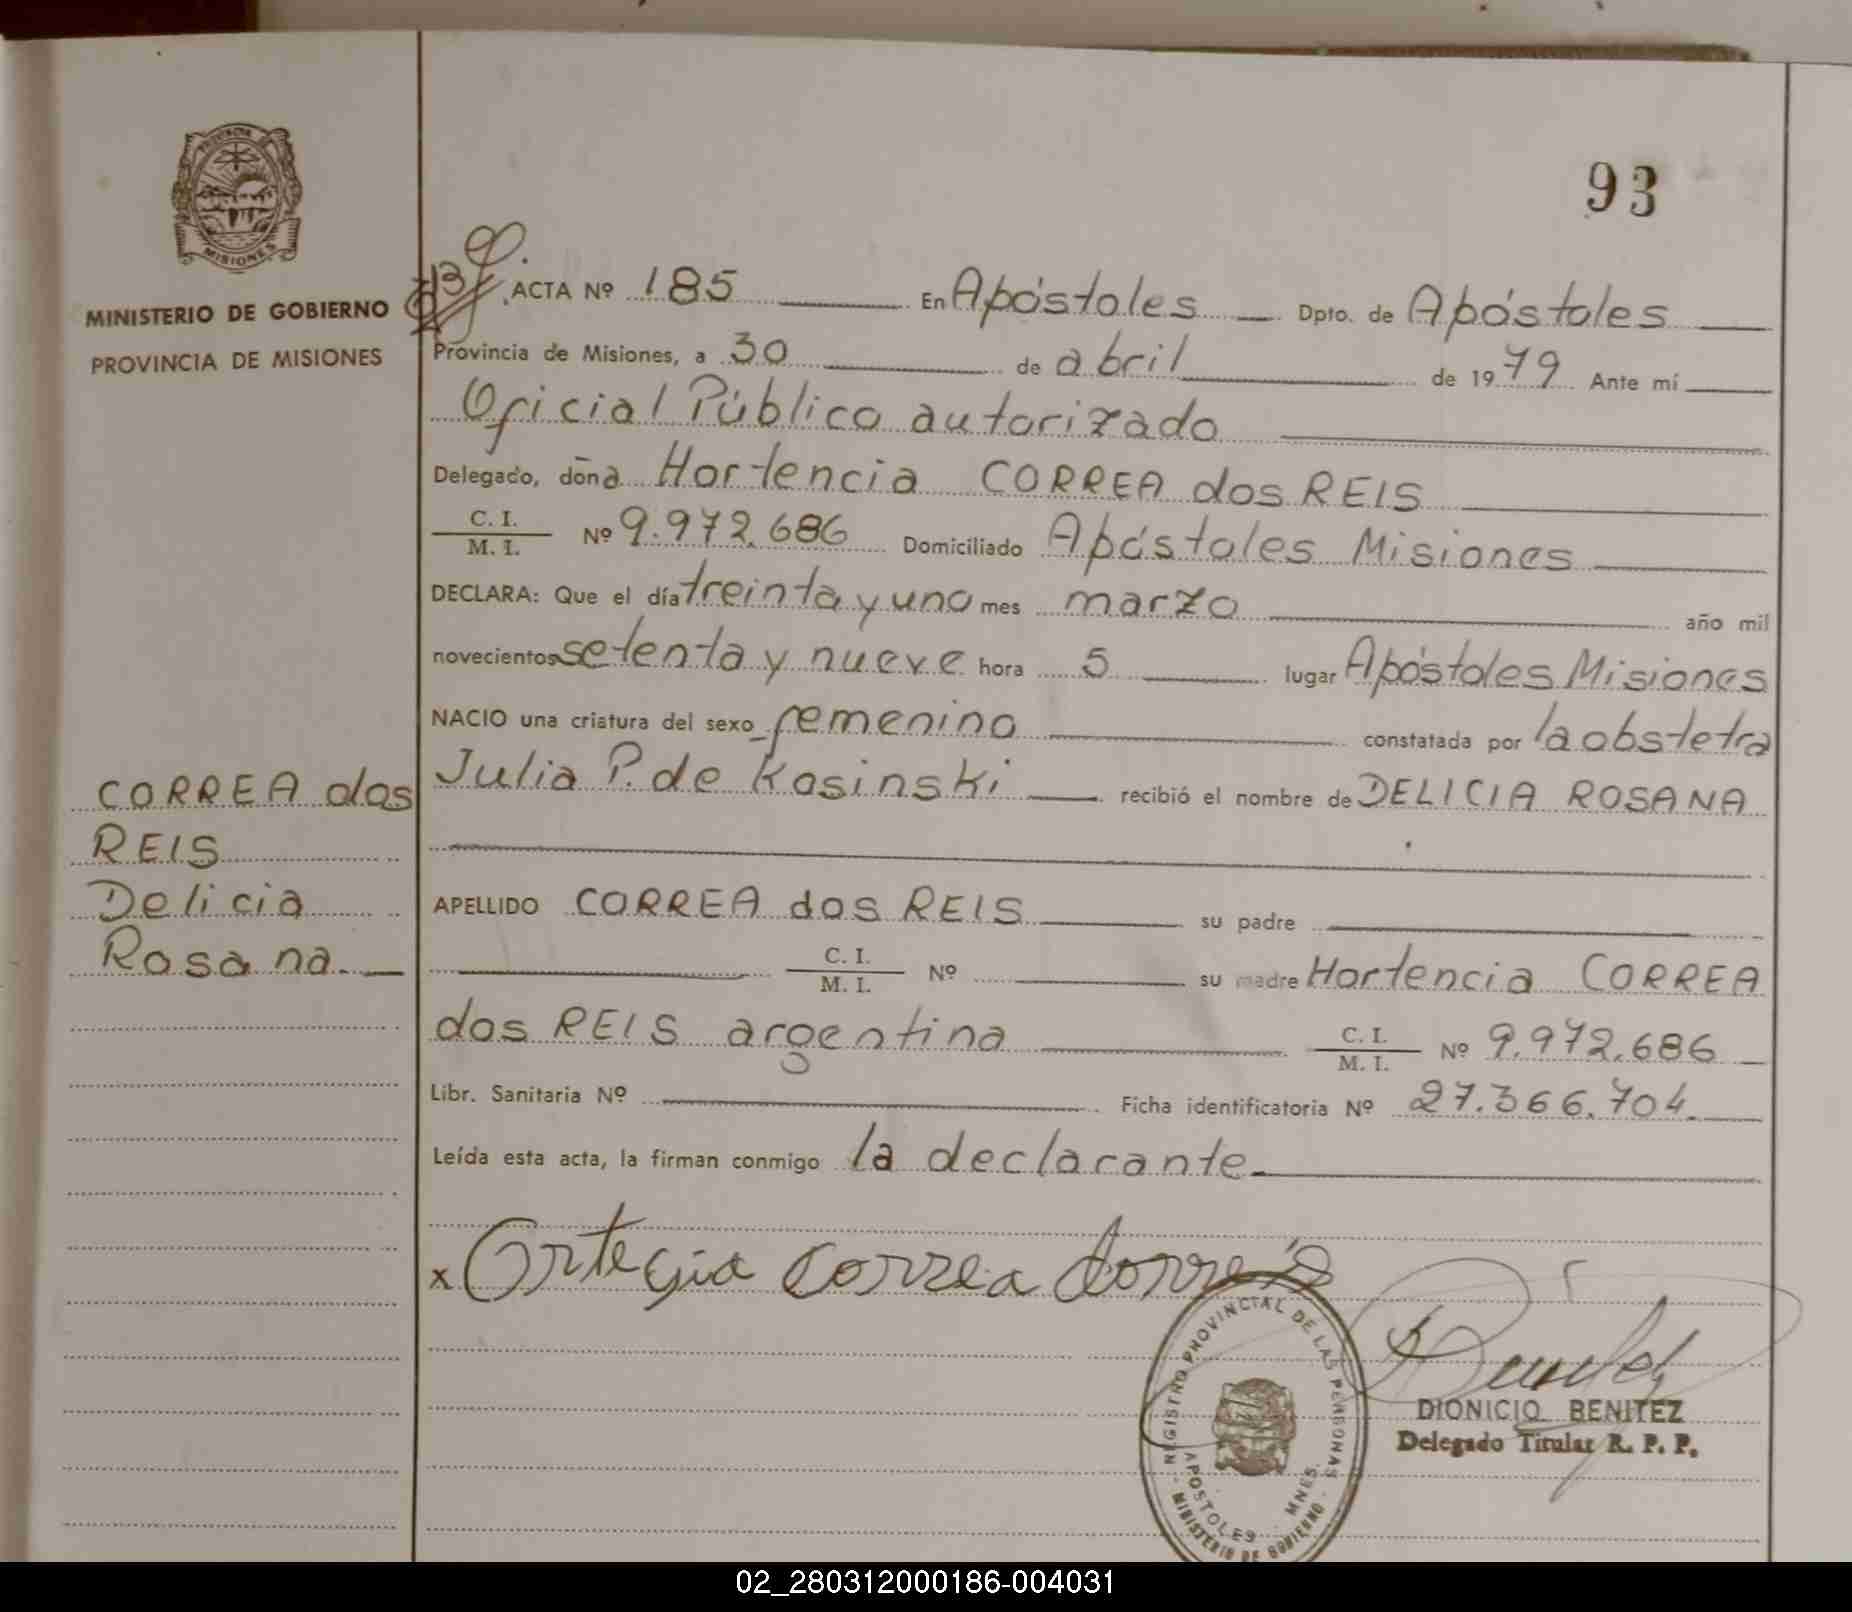 93
PROVINCIA
MISIONES
MINISTERIO DE GOBIERNO
PROVINCIA DE MISIONES
CORREA dos
REIS
Delicia
Rosana.
ACTA Nº 185 En Apóstoles Dpto. de Apóstoles
Provincia de Misiones, a 30 de abril de 1979 Ante mí
Oficial Público autorizado
Delegado, doña Hortencia CORREA dos REIS
C. I. / M. I. Nº 9.972.686 Domiciliado Apóstoles Misiones
DECLARA: Que el día treinta y uno mes marzo año mil
novecientos setenta y nueve hora 5 lugar Apóstoles Misiones
NACIO una criatura del sexo femenino constatada por la obstetra
Julia P. de Kosinski recibió el nombre de DELICIA ROSANA
APELLIDO CORREA dos REIS su padre
C. I. / M. I. Nº su madre Hortencia CORREA
dos REIS argentina C. I. / M. I. Nº 9.972.686
Libr. Sanitaria Nº Ficha identificatoria Nº 27.366.704.
Leída esta acta, la firman conmigo la declarante
x Ortecia Correa dorreis
REGISTRO PROVINCIAL DE LAS PERSONAS
APOSTOLES MNES.
MINISTERIO DE GOBIERNO
DIONICIO BENITEZ
Delegado Titular R. P. P.
02_280312000186-004031